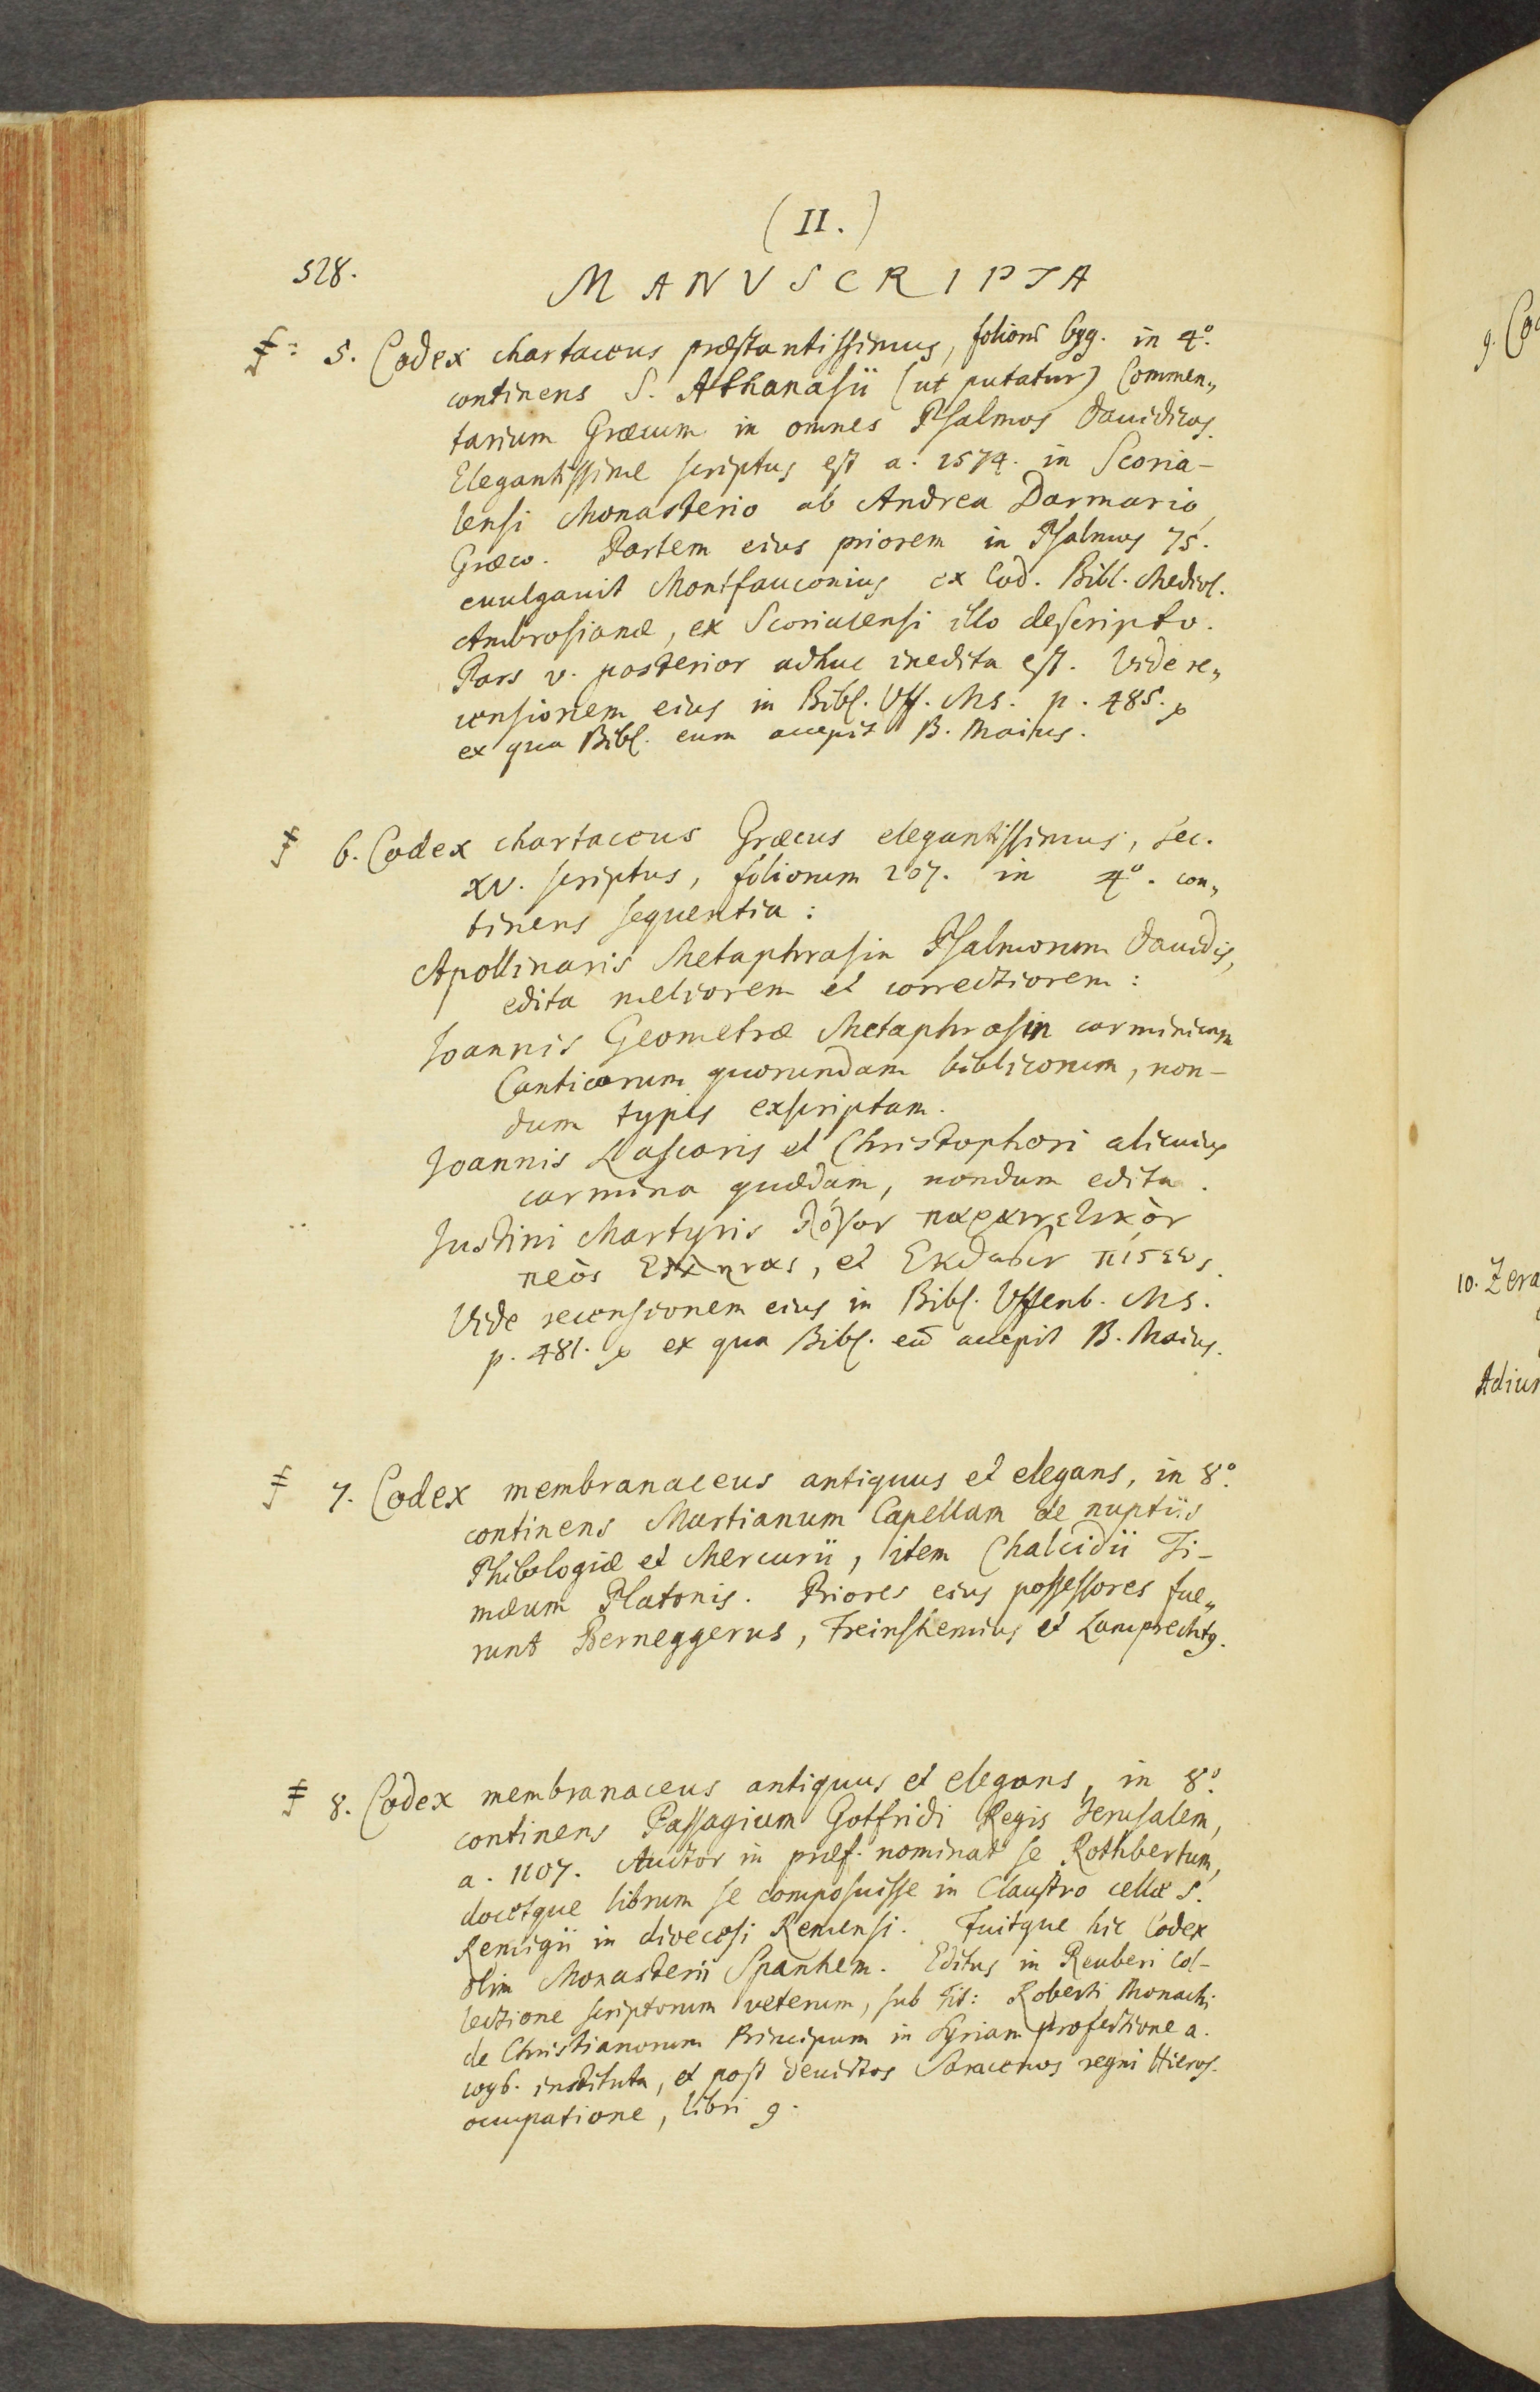 (II.)
528.
MANVSCRIPTA
5. Codex chartaceus præstantissimus, folior̄ 639. in 4º.
continens S. Athanasii (ut putatur) Commen„
tarium Græcum in omnes Psalmos Dauidicos.
Elegantissime scriptus est a. 1574. in Scoria-
lensi Monasterio ab Andrea Darmario,
Græco. Partem eius priorem in Psalmos 75.
euulgauit Montfauconius ex Cod. Bibl. Mediol.
Ambrosianæ, ex Scorialensi illo descripto.
Pars v. posterior adhuc inedita est. Vide re„
censionem eius in Bibl. Uff. Ms. p. 485.
ex qua Bibl. eum accepit B. Maius.
6. Codex chartaceus Græcus elegantissimus, sec.
XV. scriptus, foliorum 207. in 4º. con„
tinens sequentia:
Apollinaris Metaphrasin Psalmorum Dauidis,
edita meliorem et correctiorem:
Ioannis Geometræ Metaphrasin carminicam
Canticorum quorundam biblicorum, non-
dum typis exscriptam.
Ioannis Lascaris et Christophori alicuius
carmina quædam, nondum edita.
Iustini Martyris λόγον παραινετικὸν
πρὸς Ελληνας, et Εκθεσιν πίστεως.
Vide recensionem eius in Bibl. Uffenb. Ms.
p. 481. ex qua Bibl. eū accepit B. Maius.
7. Codex membranaceus antiquus et elegans, in 8º.
continens Martianum Capellam de nuptiis
Philologiæ et Mercurii, item Chalcidii Ti-
mæum Platonis. Priores eius possessores fue„
runt Berneggerus, Freinshemius et Lamprecht9.
8. Codex membranaceus antiquus et elegans, in 8º.
continens Passagium Gotfridi Regis Jerusalem,
a. 1107. Auctor in præf. nominat se Rothbertum,
docetque librum se composuisse in Claustro cellæ S.
Remigii in dioecesi Remensi. Fuitque hic Codex
olim Monasterii Spanhem. Editus in Reuberi Col-
lectione scriptorum veterum, sub tit: Roberti Monachi
de Christianorum Principum in Syriam profectione a.
1096. instituta, et post deuictos Saracenos regni Hieros.
occupatione, libri 9.
9. Co
10. Zera
Adiun